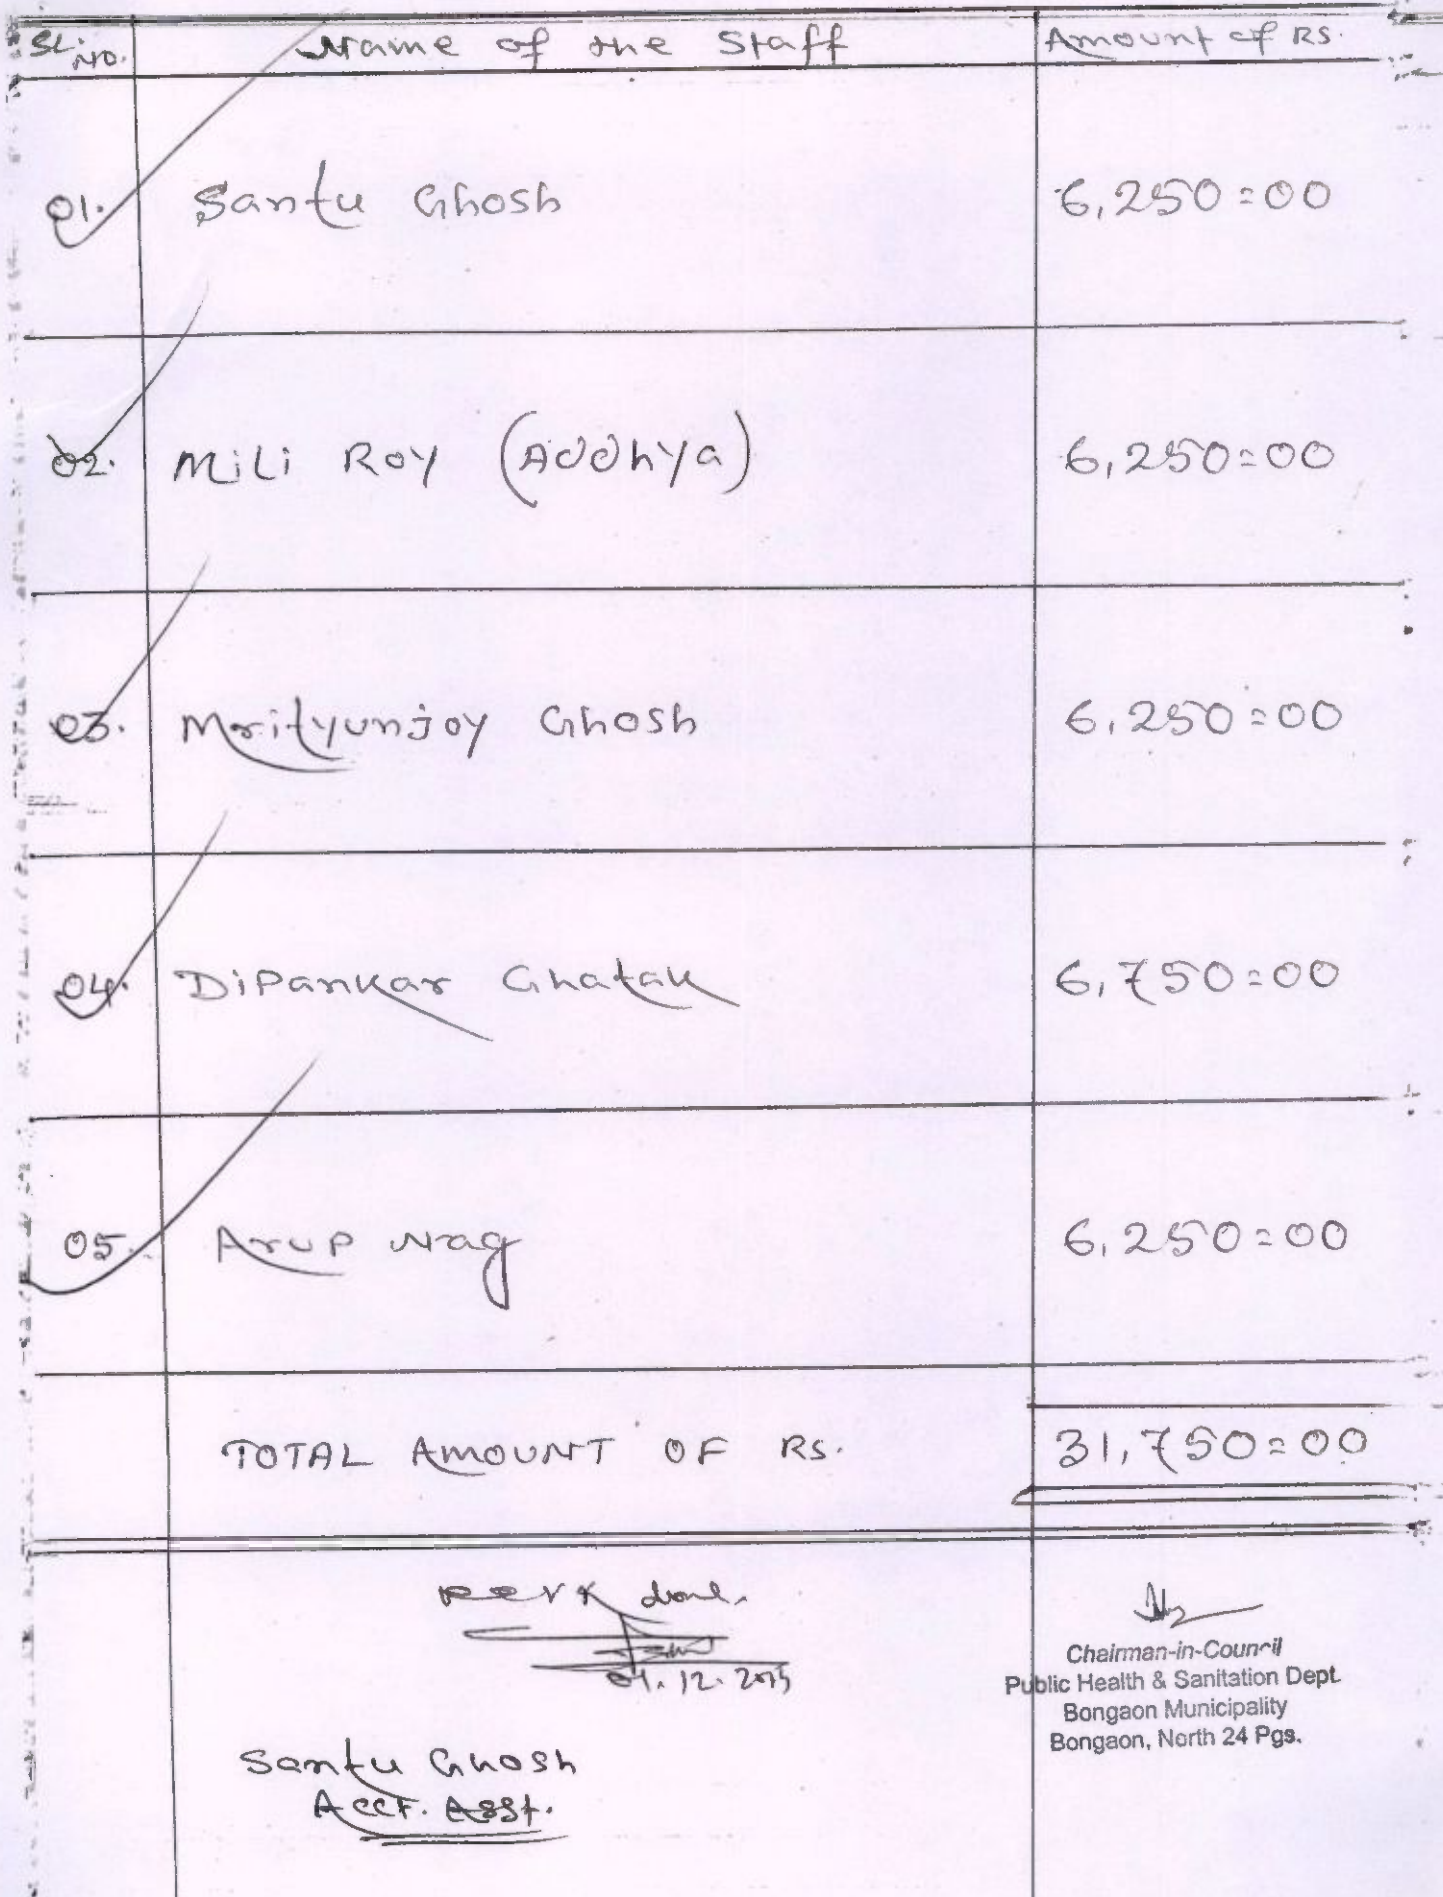 SL. NO. Name of the Staff Amount of RS.
01. Santu Ghosh 6,250=00
02. Mili Roy (Addhya) 6,250=00
03. Mrityunjoy Ghosh 6,250=00
04. Dipankar Ghatak 6,750=00
05. Arup Nag 6,250=00
TOTAL AMOUNT OF RS. 31,750=00
done.
12.2015
Chairman-in-Council
Public Health & Sanitation Dept.
Bongaon Municipality
Bongaon, North 24 Pgs.
Santu Ghosh
Acct. Asst.